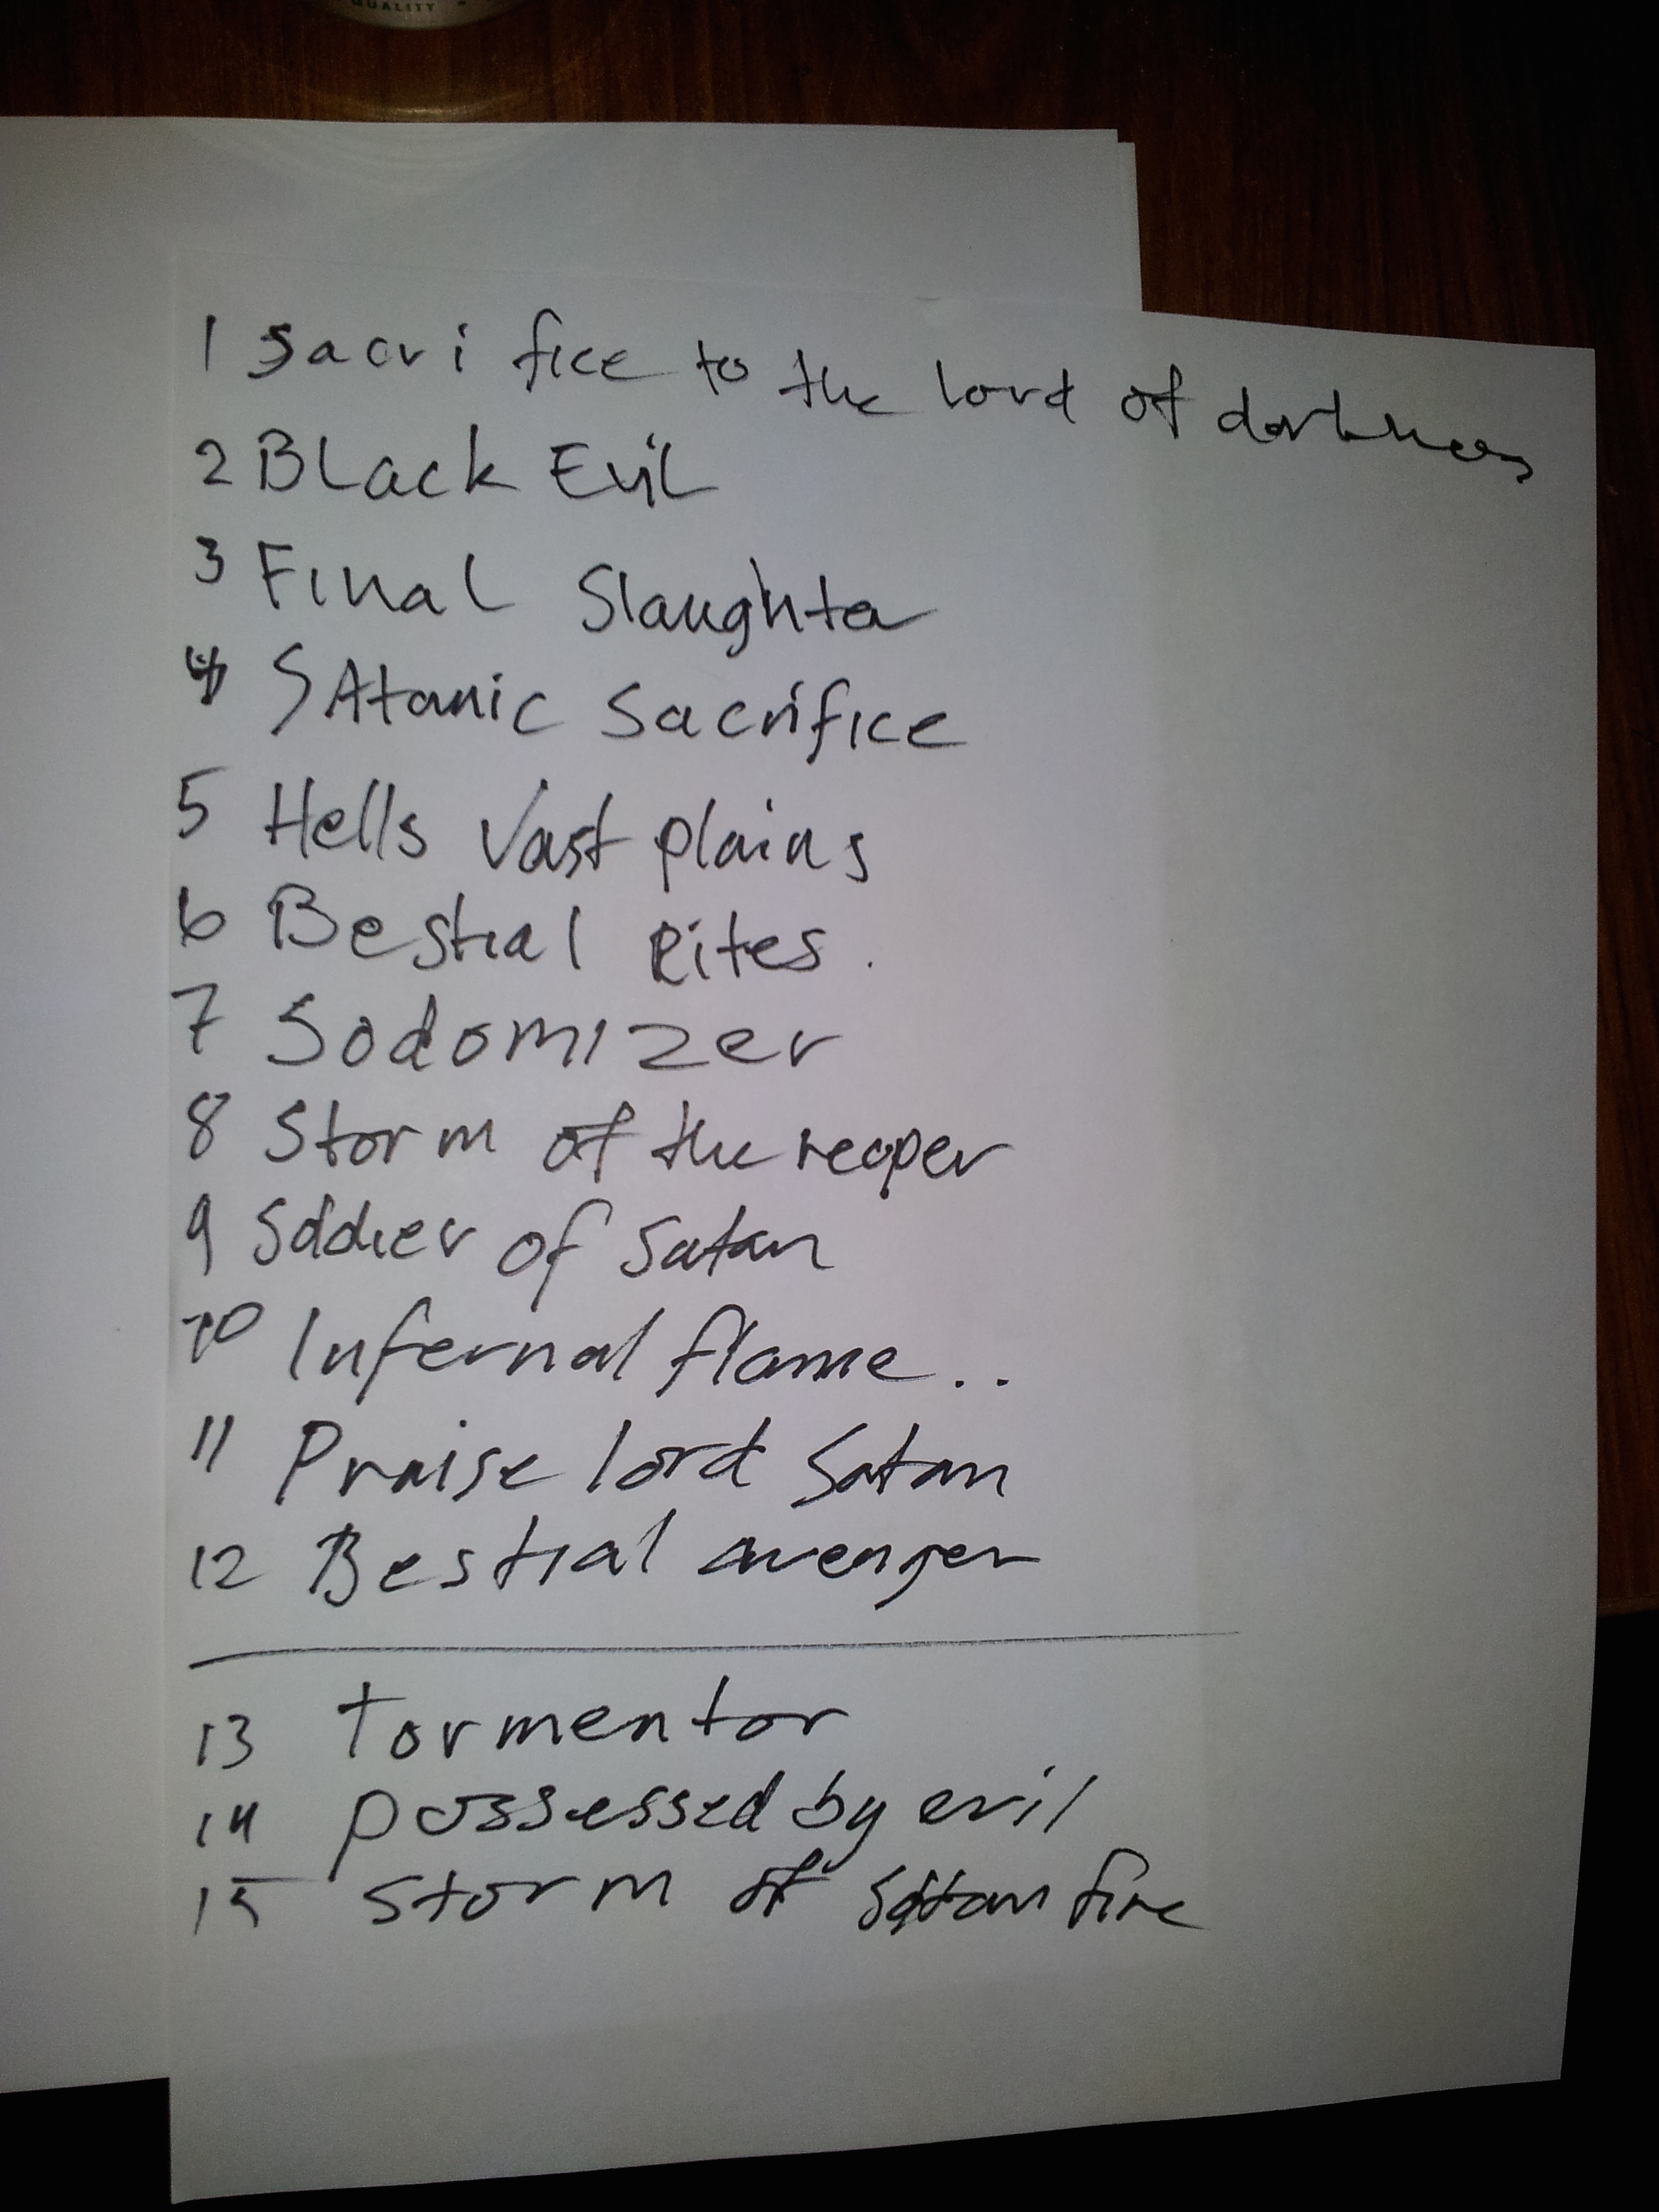 QUALITY -
1 Sacrifice to the lord of darkness
2 BLack EviL
3 FinaL Slaughter
4 SAtanic Sacrifice
5 Hells Vast plains
6 Bestial Rites.
7 Sodomizer
8 Storm of the reaper
9 Soldier of Satan
10 Infernal flame..
11 Praise lord Satan
12 Bestial avenger
13 Tormentor
14 possessed by evil
15 Storm of Satan fire